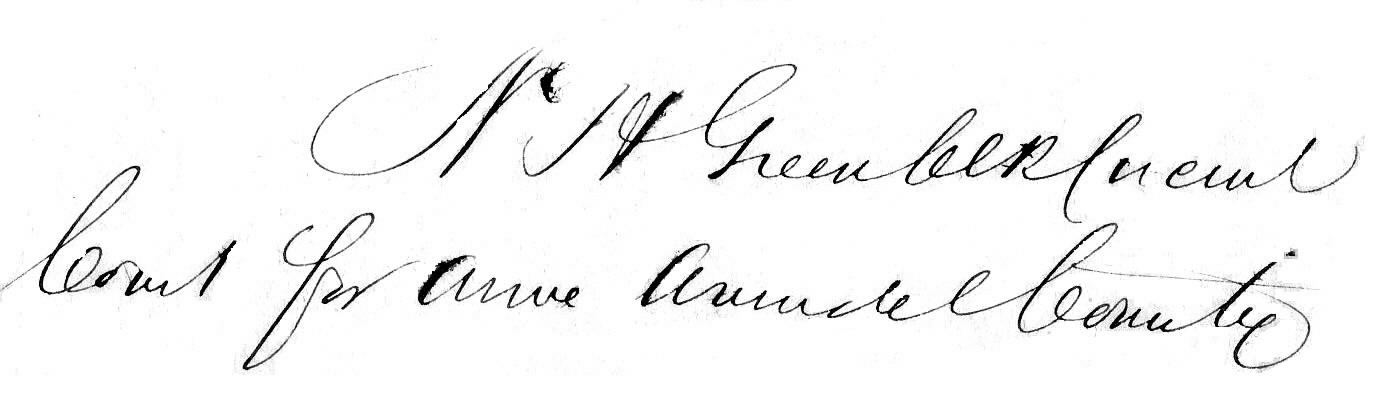 N H Green Clk Circuit
Court for Anne Arundel County